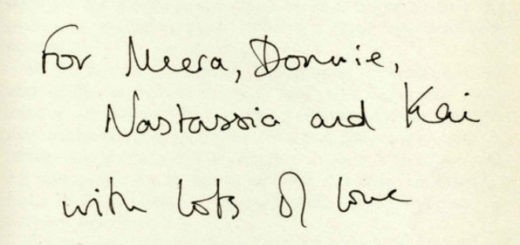 For Meera, Donnie,
Nastassia and Kai
with lots of love